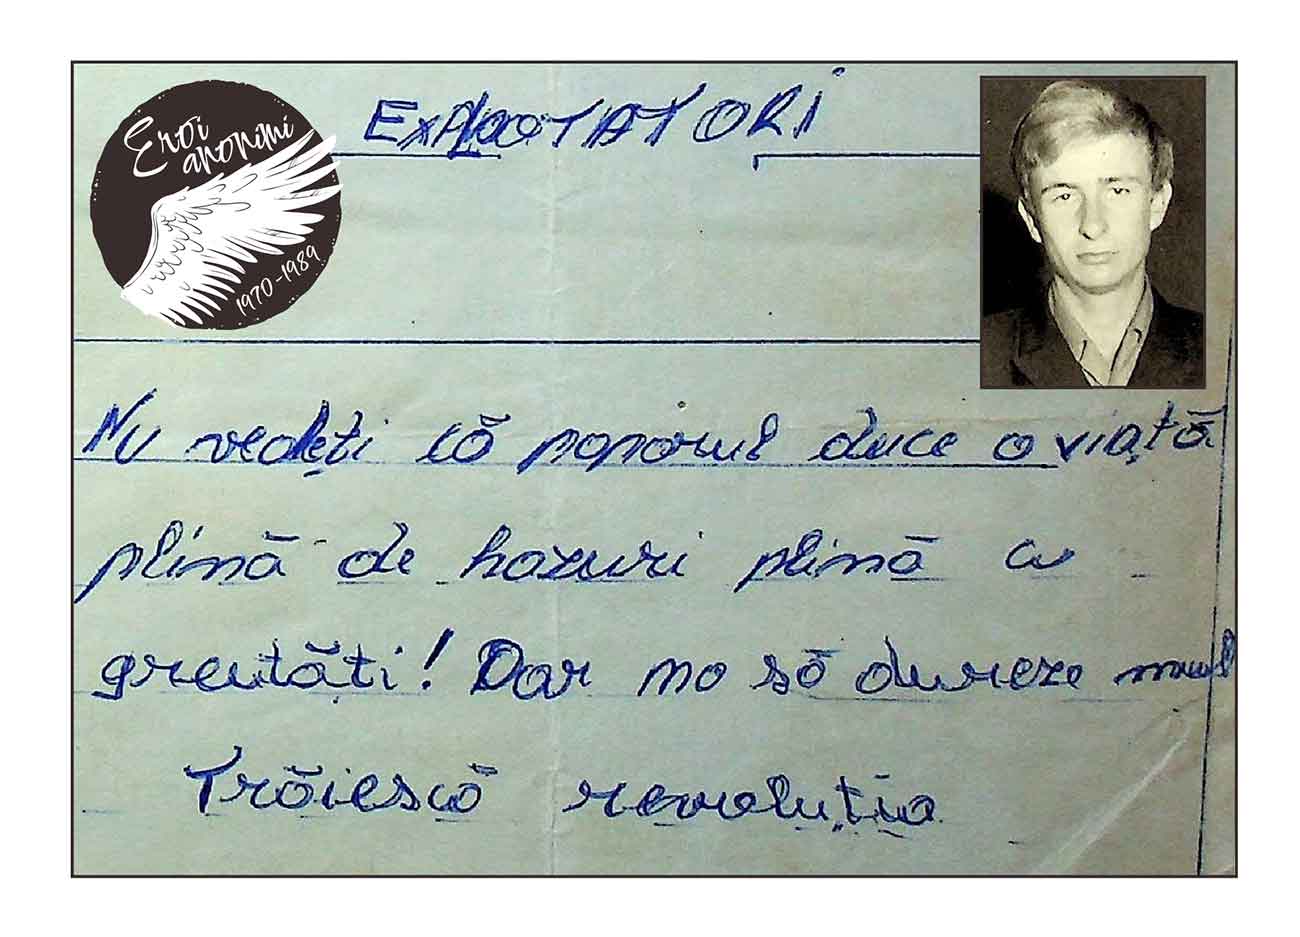 Eroi
anonimi
1970-1989
EXPLOOTATORI
Nu vedeți că poporul duce o viață
plină de hazuri plină cu
greutăți! Dar no să dureze mult
Trăiescă revoluția